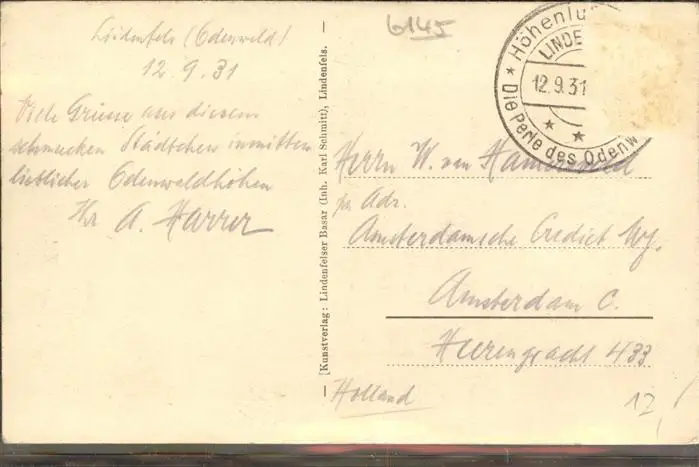 6145
Lindenfels (Odenwald)
12.9.31
Viele Grüsse aus diesem
schmucken Städtchen inmitten
lieblicher Odenwaldhöhen
Ihr A. Harrer
[Kunstverlag: Lindenfelser Basar (Inh. Karl Schmitt), Lindenfels.
Höhenlu
LINDE
12.9.31
Die Perle des Odenw
Herrn W. van
pr Adr.
Amsterdamsche Crediet
Amsterdam C.
Heerengracht 433
Holland
12